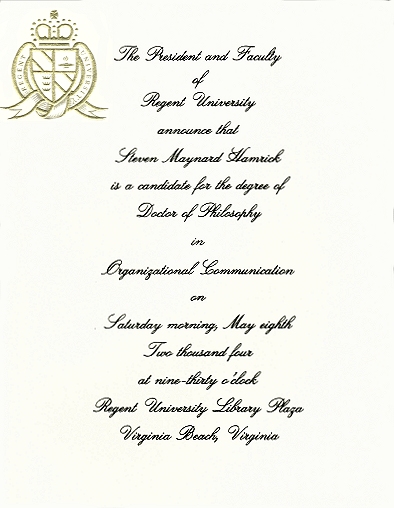 REGENT UNIVERSITY
The President and Faculty
of
Regent University
announce that
Steven Maynard Hamrick
is a candidate for the degree of
Doctor of Philosophy
in
Organizational Communication
on
Saturday morning, May eighth
Two thousand four
at nine-thirty o'clock
Regent University Library Plaza
Virginia Beach, Virginia